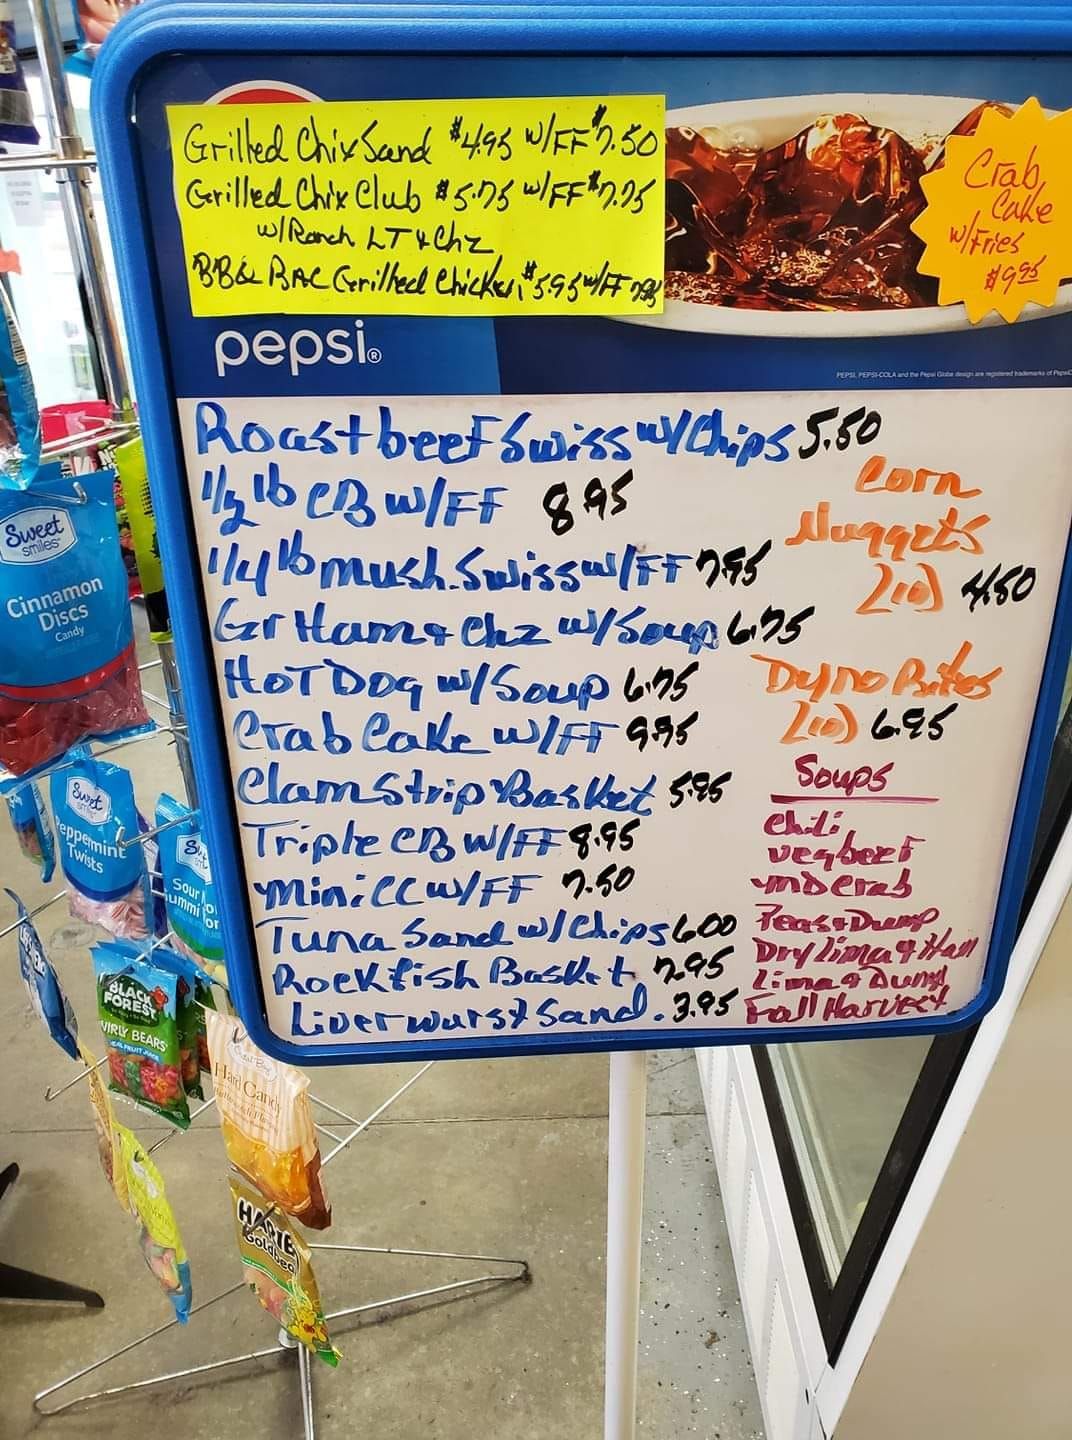 Grilled Chix Sand $4.95 w/FF $7.50
Grilled Chix Club $5.75 w/FF $7.75
w/Ranch LT & Chz
BB& BAC Grilled Chicken, $5.95 w/FF 7.95
Crab
Cake
w/Fries
$9.95
pepsi®
PEPSI, PEPSI-COLA and the Pepsi Globe design are registered trademarks of PepsiC
Roast beef Swiss w/Chips 5.50
1/2 lb CB w/FF 8.95
1/4 lb mush. Swiss w/FF 7.95
Gr Ham & Chz w/Soup 6.75
HOT Dog w/Soup 6.75
Crab Cake w/FF 9.95
Clam Strip Basket 5.95
Triple CB w/FF 8.95
Mini CC w/FF 7.50
Tuna Sand w/Chips 6.00
Rockfish Basket 7.95
Liverwurst Sand. 3.95
Corn
Nuggets
(10) 4.50
Dyno Bites
(10) 6.95
Soups
Chili
veg beef
MD Crab
Peas & Dump
Dry Lima & Ham
Lima & Dump
Fall Harvest
Sweet
smiles
Cinnamon
Discs
Candy
Sweet
smiles
Peppermint
Twists
Sour
BLACK
FOREST
REAL FRUIT JUICE
Hard Candy
Goldbea